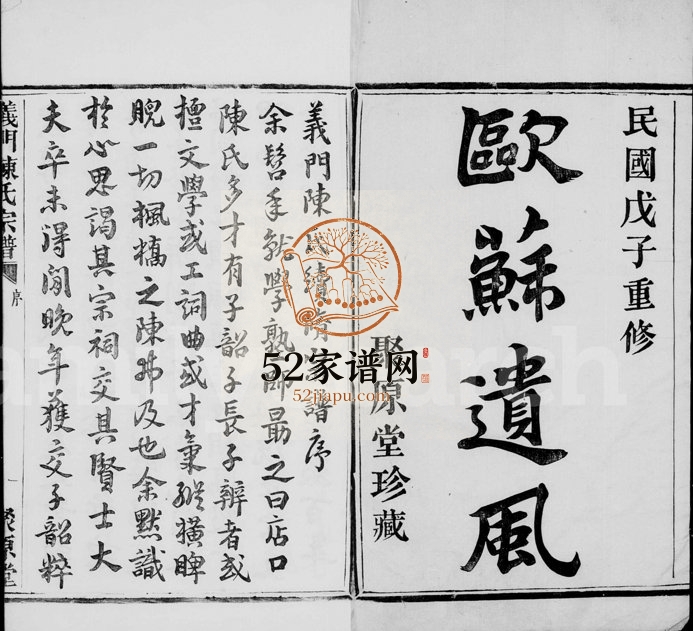 民國戊子重修
歐蘇遺風
聚原堂珍藏
義門陳續譜序
余髫年就學塾師最之曰店口
陳氏多才有子韶子長子辨者或
擅文學或工詞曲或才氣縱橫睥
睨一切楓橋之陳弗及也余默識
於心思謁其宗祠交其賢士大
夫卒未得閒晚年獲交子韶粹
義門陳氏宗譜
序
聚原堂
52家谱网
52jiapu.com